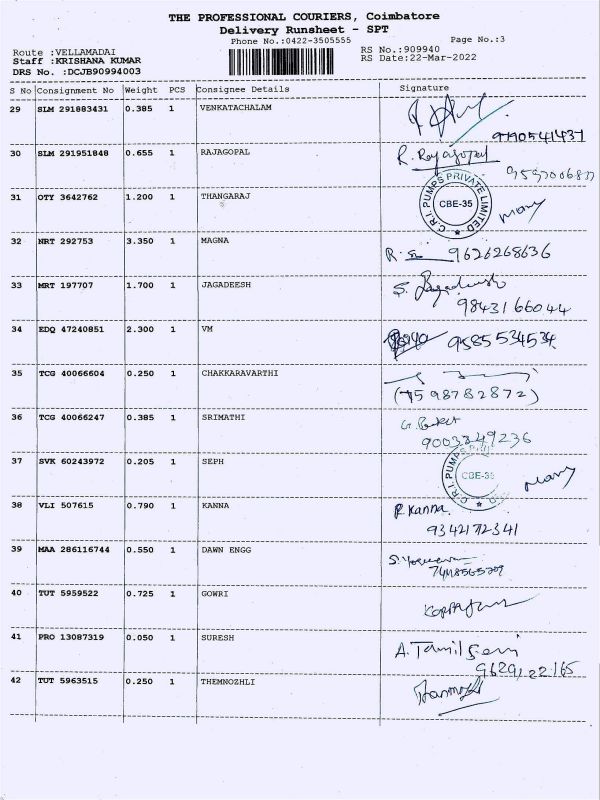 THE PROFESSIONAL COURIERS, Coimbatore
Delivery Runsheet - SPT
Phone No.:0422-3505555 Page No.:3
Route :VELLAMADAI RS No.:909940
Staff :KRISHANA KUMAR RS Date:22-Mar-2022
DRS No. :DCJB90994003
S No Consignment No Weight PCS Consignee Details Signature
29 SLM 291883431 0.385 1 VENKATACHALAM
9790541437
30 SLM 291951848 0.655 1 RAJAGOPAL R. Rajagopal
31 OTY 3642762 1.200 1 THANGARAJ C.R.I. PUMPS PRIVATE LIMITED CBE-35
32 NRT 292753 3.350 1 MAGNA 9626268636
33 MRT 197707 1.700 1 JAGADEESH S. Jagadeesh
9843166044
34 EDQ 47240851 2.300 1 VM 9585534534
35 TCG 40066604 0.250 1 CHAKKARAVARTHI
(7598782872)
36 TCG 40066247 0.385 1 SRIMATHI
9003849236
37 SVK 60243972 0.205 1 SEPH C.R.I. PUMPS CBE-35
38 VLI 507615 0.790 1 KANNA P. Kanna
9342172341
39 MAA 286116744 0.550 1 DAWN ENGG
40 TUT 5959522 0.725 1 GOWRI
41 PRO 13087319 0.050 1 SURESH A. Tamil Selvi
9629122165
42 TUT 5963515 0.250 1 THEMNOZHLI